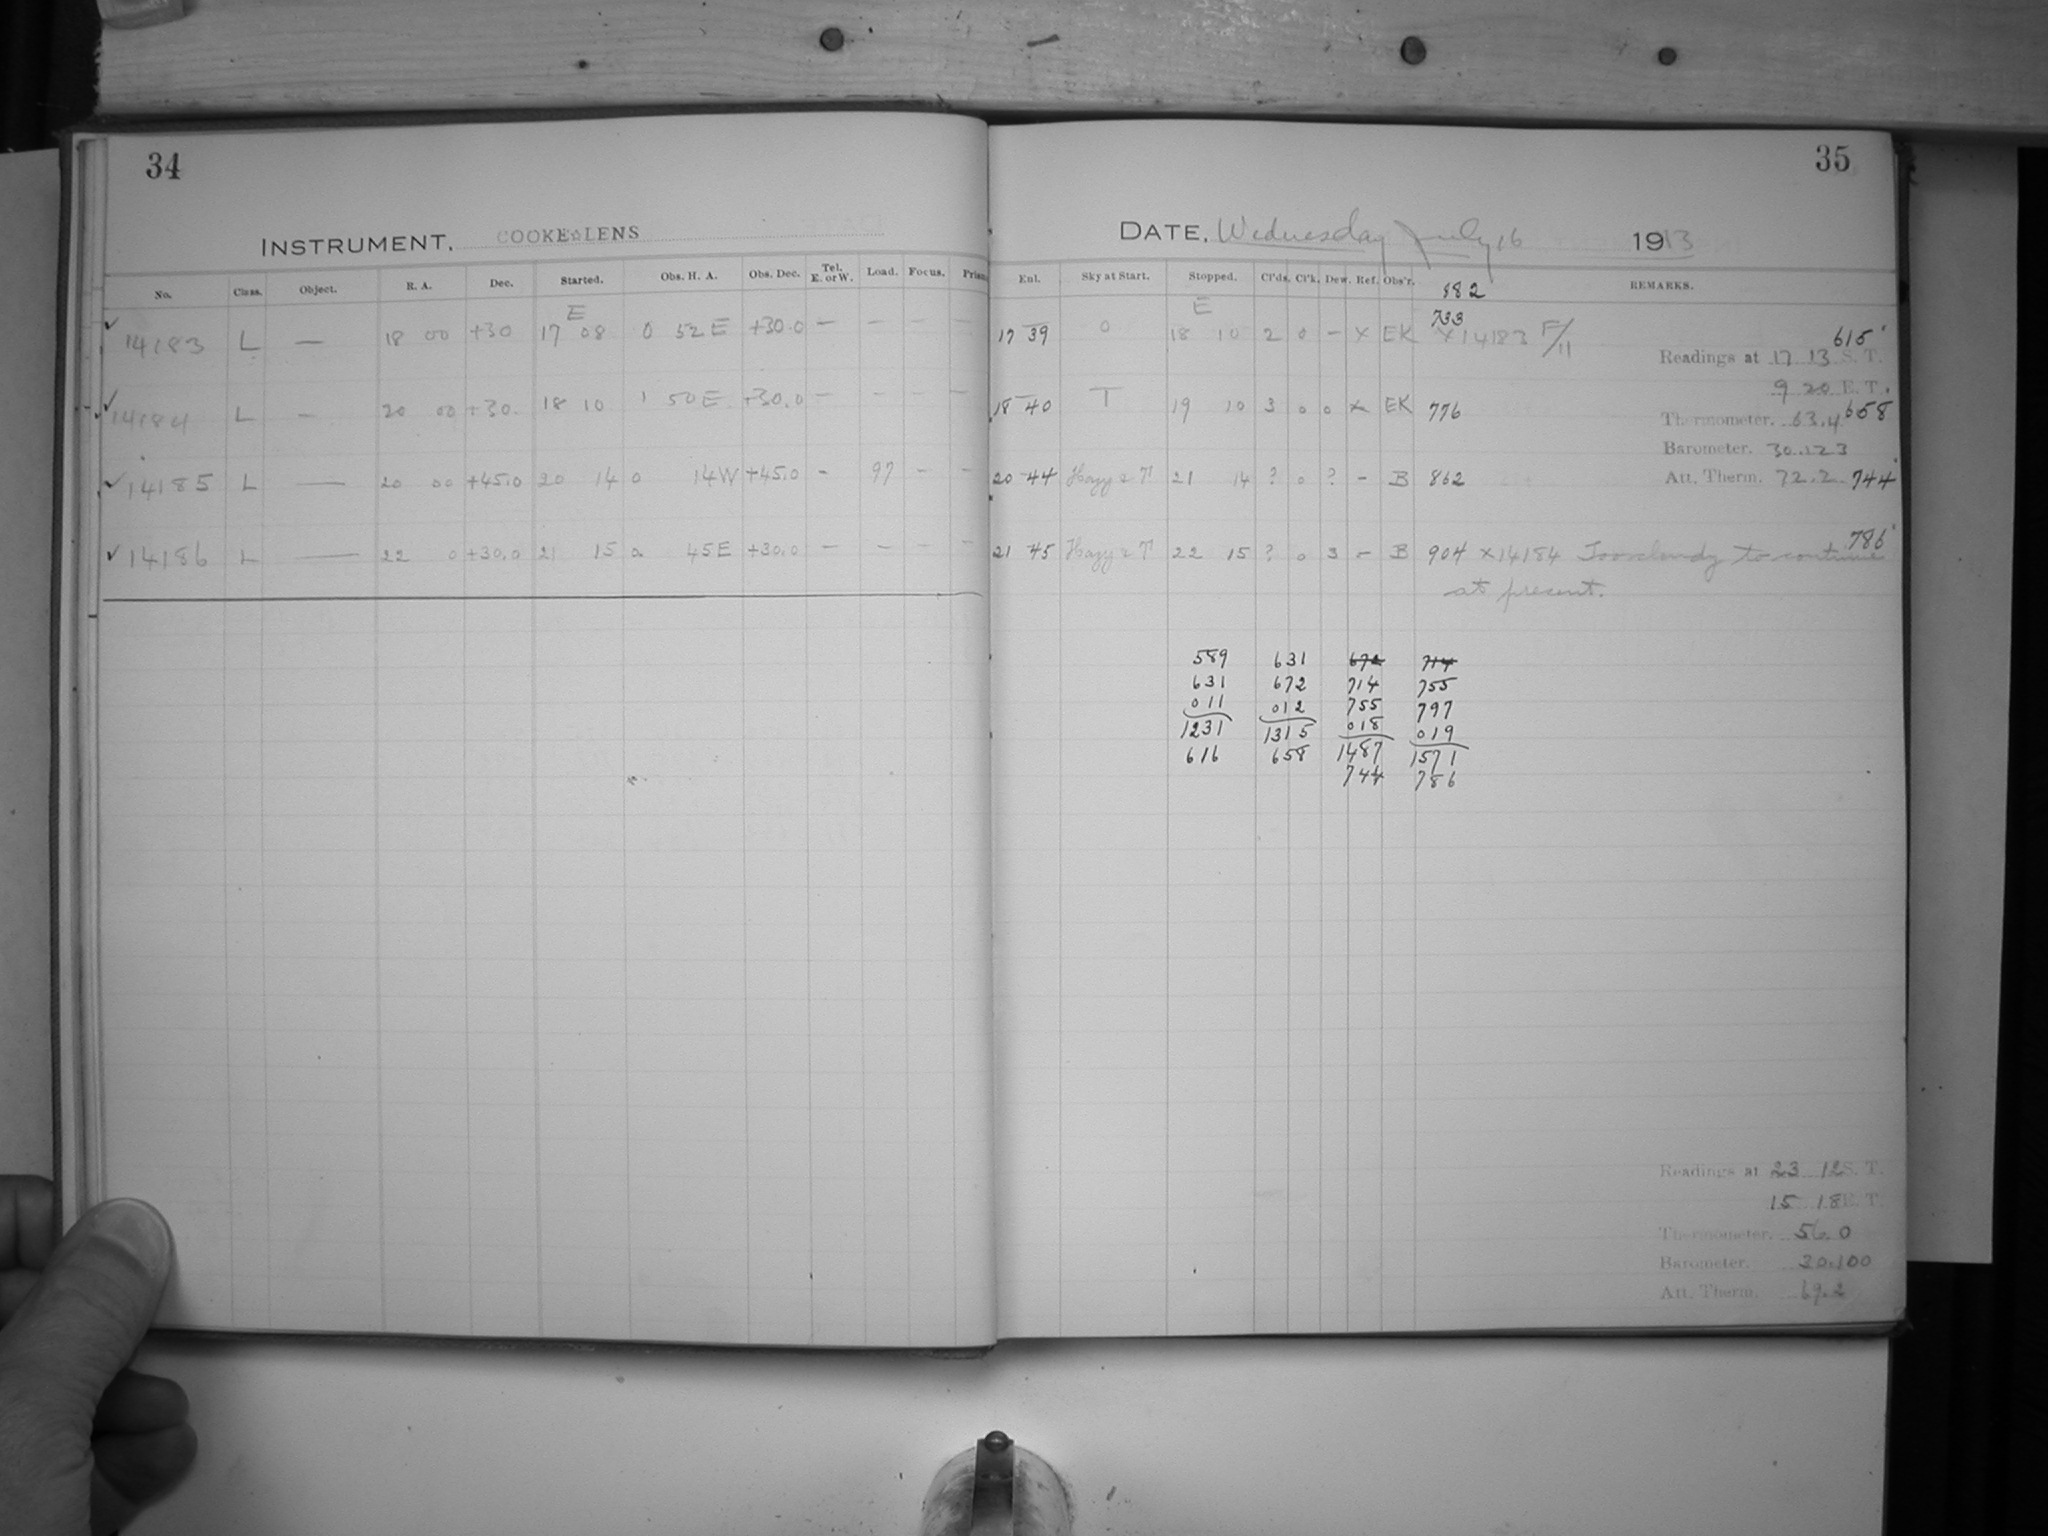 34
INSTRUMENT. COOKE LENS
No. Class. Object. R. A. Dec. Started. Obs. H. A. Obs. Dec. Tel. E. or W. Load. Focus. Prism
E
14183 L — 18 00 +30 17 08 0 52 E +30.0 — — — —
14184 L — 20 00 +30. 18 10 1 50 E +30.0 — — — —
14185 L — 20 00 +45.0 20 14 0 14 W +45.0 — 97 — —
14186 L — 22 0 +30.0 21 15 0 45 E +30.0 — — — —
35
DATE, Wednesday July 16 1913
Ent. Sky at Start. Stopped. Cl'ds. Cl'k. Dew. Ref. Obs'r. REMARKS.
E 733
17 39 0 18 10 2 0 — x EK x 14183 F/11 615
Readings at 17 13 S. T.
9 20 E. T.
18 40 T 19 10 3 0 0 x EK 776
Thermometer. 63.4 658
Barometer. 30.123
20 44 Hazy & T 21 14 ? 0 ? — B 862
Att. Therm. 72.2 744
786
21 45 Hazy & T 22 15 ? 0 3 — B 904 x 14184 Too cloudy to continue
at present.
589 631 672 714
631 672 714 755
011 012 755 797
1231 1315 018 019
616 658 1487 1571
744 786
Readings at 23 12 S. T.
15 18 E. T.
Thermometer. 56.0
Barometer. 30.100
Att. Therm. 69.2